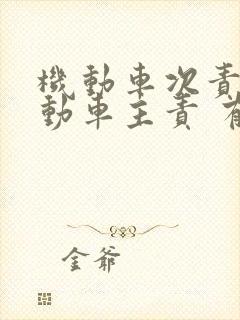 機動車次責
動車主責
金爺